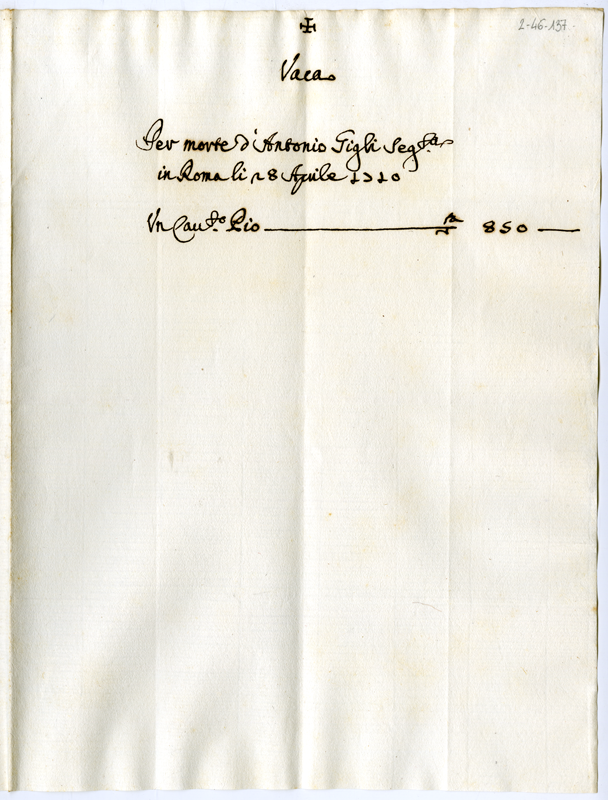 2-46-157.
✠
Vaca
Per morte d'Antonio Gigli Seg.ta
in Roma li 28 Aprile 1710
Vn Cau.to Pio 850